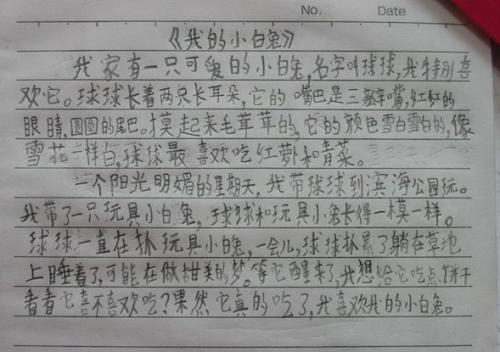 No. Date
《我的小白兔》
我家有一只可爱的小白兔,名字叫球球,我特别喜
欢它。球球长着两只长耳朵,它的嘴巴是三瓣嘴,红红的
眼睛,圆圆的尾巴。摸起来毛茸茸的,它的颜色雪白雪白的,像
雪花一样白,球球最喜欢吃红萝和青菜。
一个阳光明媚的星期天,我带球球到滨海公园玩。
我带了一只玩具小白兔,球球和玩具小兔长得一模一样。
球球一直在扒玩具小白兔,一会儿,球球扒累了躺在草地
上睡着了,可能在做甜美的梦。等它醒来了,我想给它吃点饼干
看看它喜不喜欢吃?果然它真的吃了,我喜欢我的小白兔。